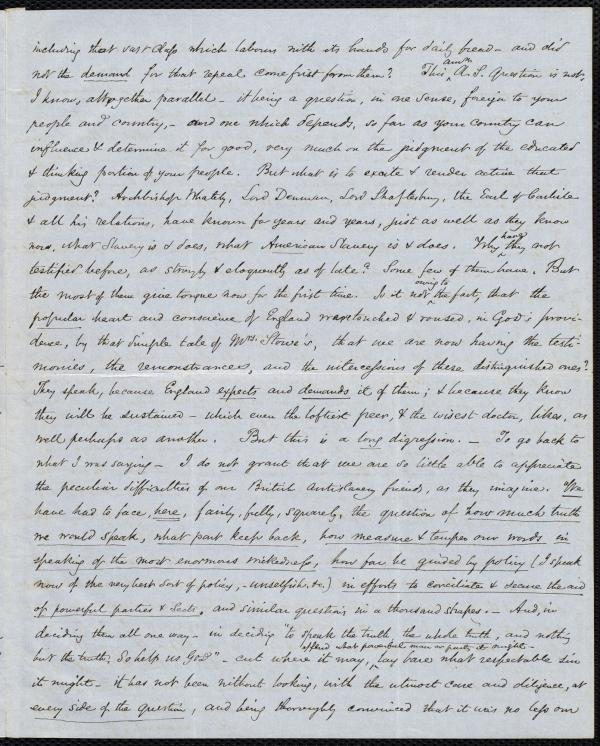 including that vast class which labours with its hands for daily bread – and did
not the demand for that repeal come first from them? This Amn. A. S. Question is not,
I know, altogether parallel – it being a question, in one sense, foreign to your
people and country, – and one which depends, so far as your country can
influence & determine it for good, very much on the judgment of the educated
& thinking portion of your people. But what is to excite & render active that
judgment? Archbishop Whately, Lord Denman, Lord Shaftesbury, the Earl of Carlisle
& all his relations, have known for years and years, just as well as they know
now, what Slavery is & does, what American Slavery is & does. Why have they not
testified before, as strongly & eloquently as of late? Some few of them have. But
the most of them give tongue now for the first time. Is it not owing to the fact, that the
popular heart and conscience of England was touched & roused, in God's provi-
dence, by that simple tale of Mrs. Stowe's, that we are now having the testi-
monies, the remonstrances, and the intercessions of these distinguished ones?
They speak, because England expects and demands it of them; & because they know
they will be sustained – which even the loftiest peer, & the wisest doctor, likes, as
well perhaps as another. But this is a long digression. – To go back to
what I was saying – I do not grant that we are so little able to appreciate
the peculiar difficulties of our British Antislavery friends, as they imagine. We
have had to face, here, fairly, fully, squarely, the question of how much truth
we would speak, what part keep back, how measure & temper our words in
speaking of the most enormous wickedness, how far be guided by policy (I speak
now of the very best sort of policy, – unselfish, &c.) in efforts to conciliate & secure the aid
of powerful parties & Sects, and similar questions in a thousand shapes. – And, in
deciding them all one way – in deciding "to speak the truth, the whole truth, and nothing
but the truth, So help us God" – cut where it may, offend what powerful man or party it might – lay bare what respectable sin
it might – it has not been without looking, with the utmost care and diligence, at
every side of the question, and being thoroughly convinced that it was no less our